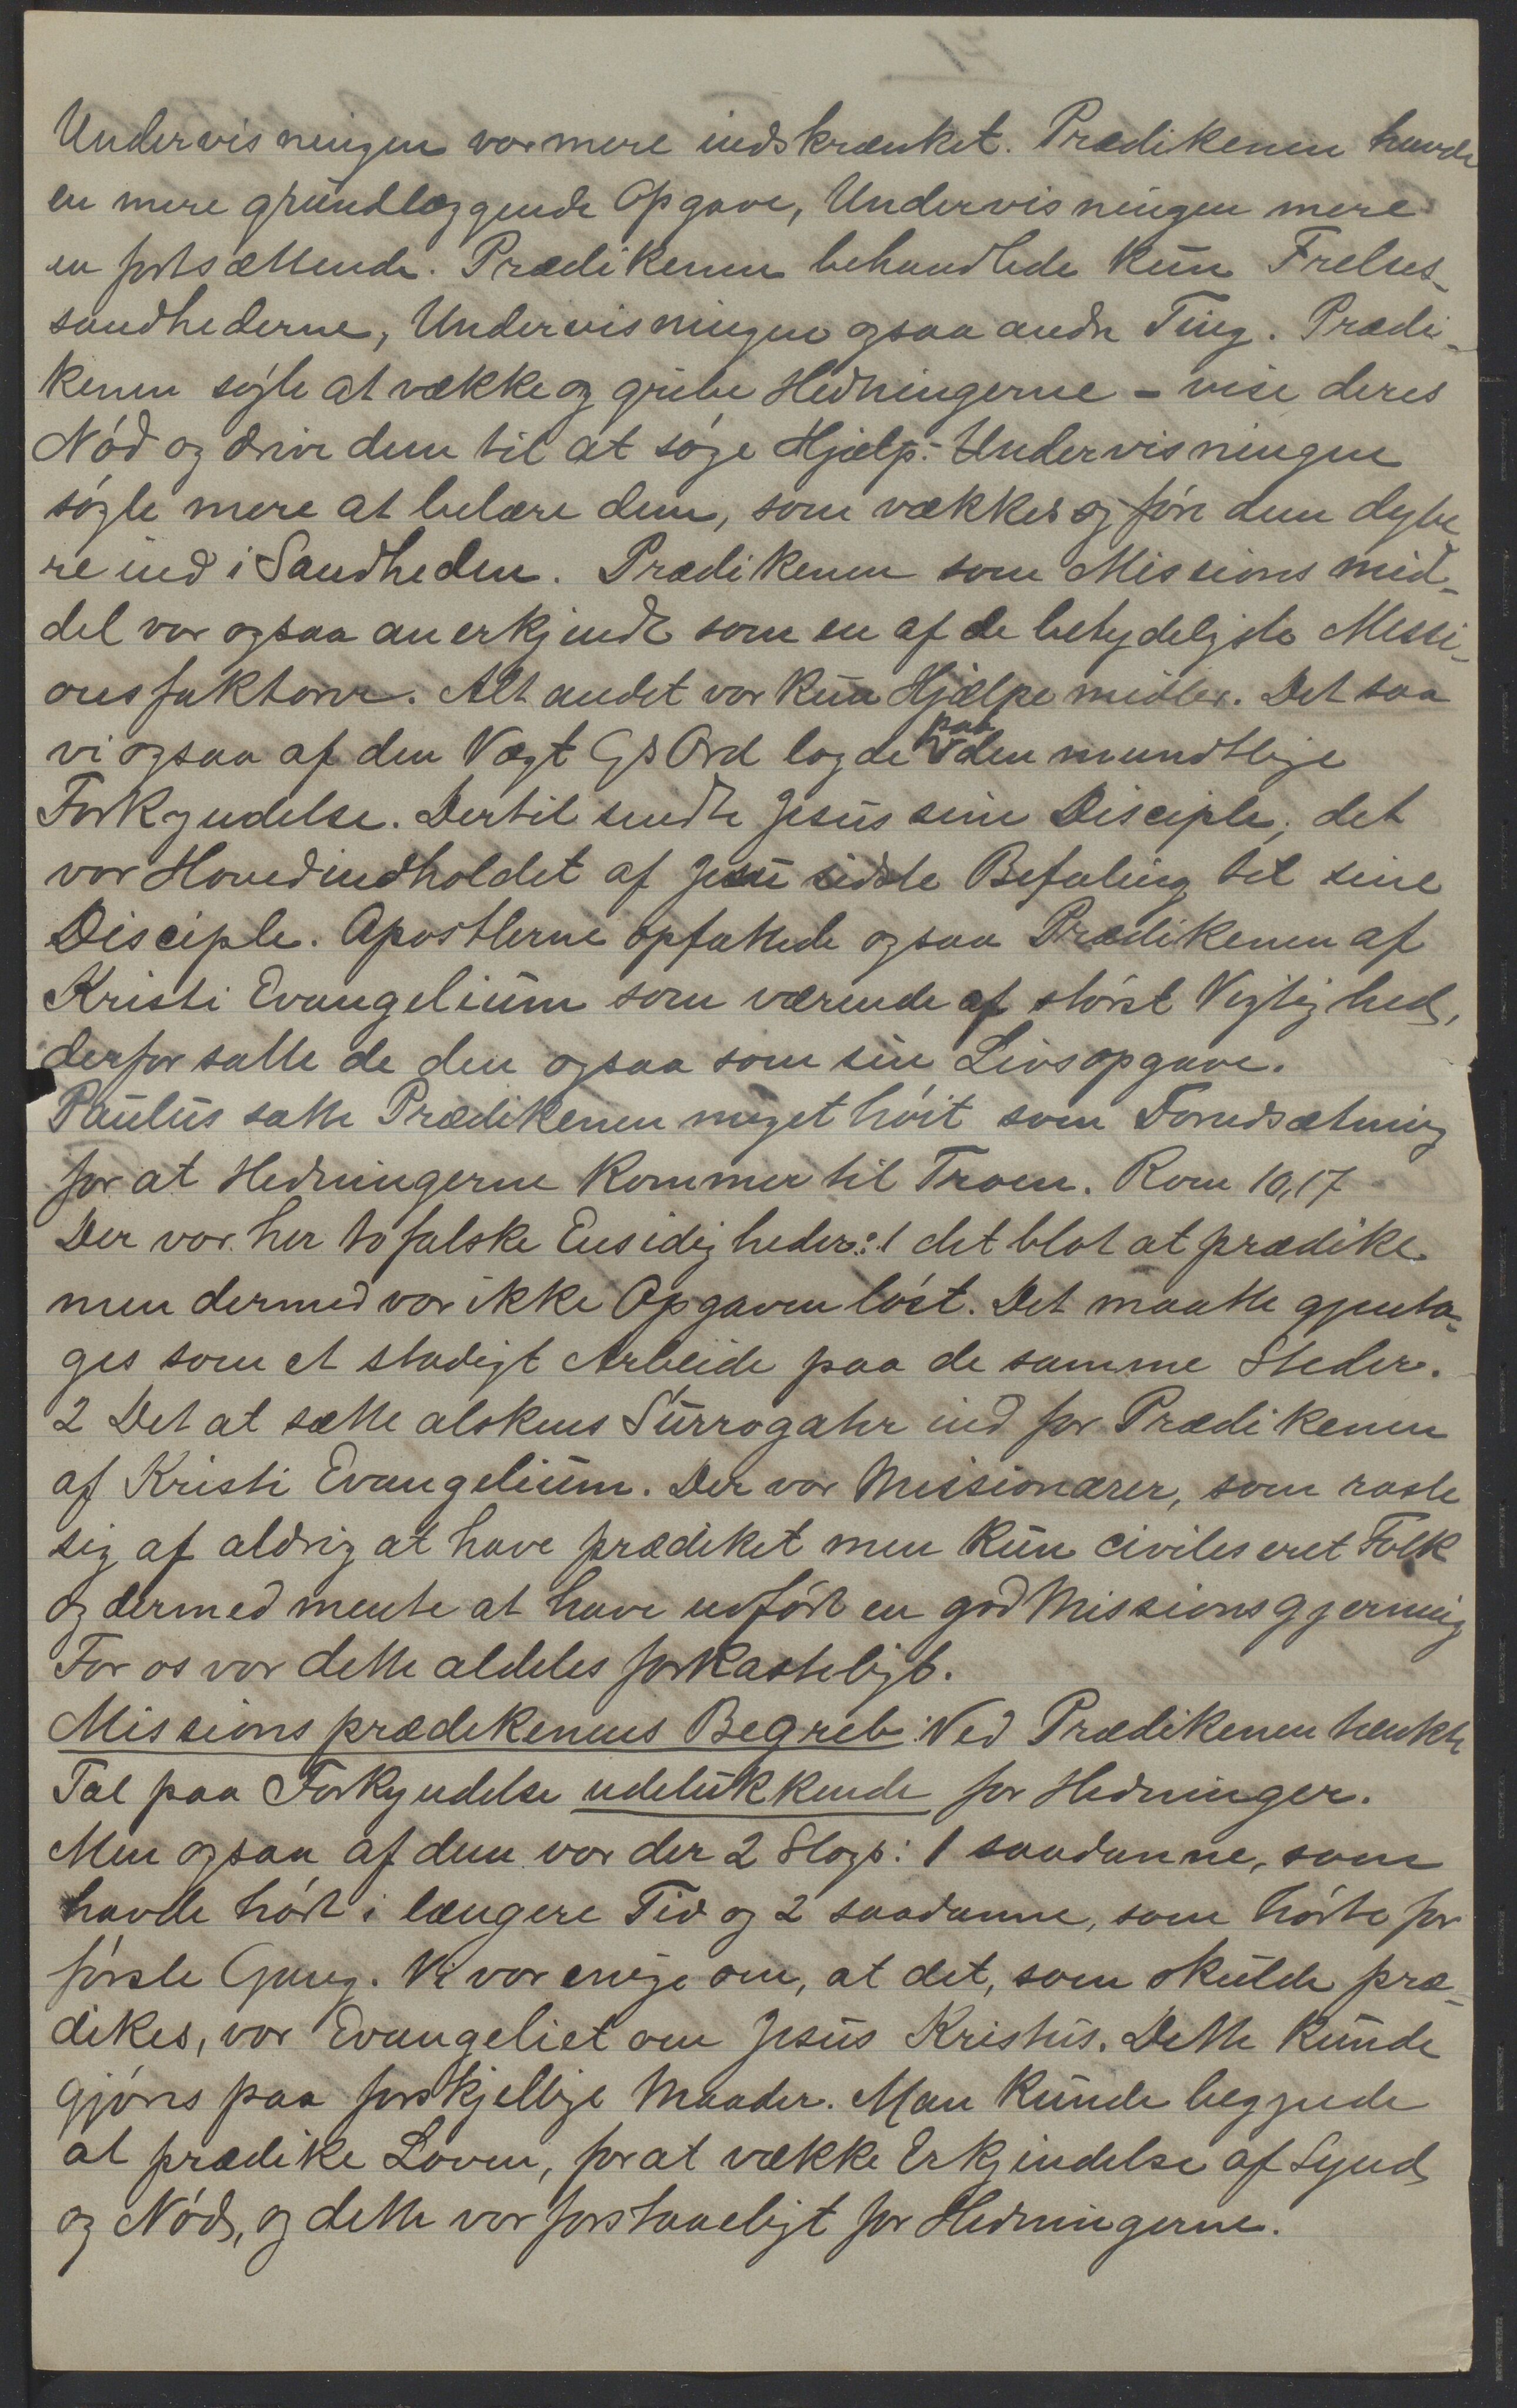 Undervisningen var mere indskrænket. Prædikenen havde
en mere grundlæggende Opgave, Undervisningen mere
en fortsættende. Prædikenen behandlede kun Frelses-
sandhederne, Undervisningen ogsaa andre Ting. Prædi-
kenen søgte at vække og gribe Hedningerne - vise deres
Nód og drive dem til at sóge Hjælp.- Undervisningen
sógte mere at belære dem, som vækkes og føre dem dybe
re ind i Sandheden. Prædikenen som Missionsmid-
del var ogsaa anerkjendt som en af de betydeligste Missi-
onsfaktorer. Alt andet var kun Hjælpemidler. Det saa
vi ogsaa af den Vægt Gs Ord lagde paa den mundtlige
Forkyndelse. Dertil sendte Jesus sine Disciple, det
var Hovedindholdet af Jesu sidste Befaling til sine
Disciple. Apostlerne opfattede ogsaa Prædikenen af
Kristi Evangelium som værende af størst Vigtighed,
derfor satte de den ogsaa som sin Livsopgave.
Paulus satte Prædikenen meget hóit som Forudsætning
for at Hedningerne kommer til Troen. Rom 10,17
Der var her to falske Ensidigheder: 1 det blot at prædike
men dermed var ikke Opgaven lóst. Det maatte gjenta-
ges som et stadigt Arbeide paa de samme Steder.
2 Det at sætte alskens Surrogater ind for Prædikenen
af Kristi Evangelium. Der var Missionærer, som roste
sig af aldrig at have prædiket men kun civiliseret Folk
og dermed mente at have udfórt en god Missionsgjerning
For os var dette aldeles forkasteligt.
Missionsprædikenens Begreb: Ved Prædikenen tænkte
Tal paa Forkyndelse udelukkende for Hedninger.
Men ogsaa af dem var der 2 Slags: 1 saadanne, som
havde hórt i længere Tid og 2 saadanne, som hórte for
fórste Gang. Vi var enige om, at det, som skulde præ-
dikes, var Evangeliet om Jesus Kristus. Dette kunde
gjóres paa forskjellige Maader. Man kunde begynde
at prædike Loven, for at vække Erkjendelse af Synd
og Nód, og dette var forstaaeligt for Hedningerne.